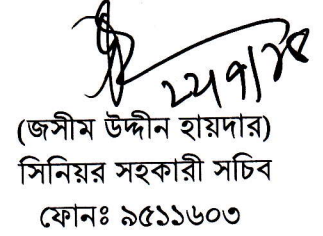 (জসীম উদ্দীন হায়দার)
সিনিয়র সহকারী সচিব
ফোনঃ ৯৫১১৬০৩